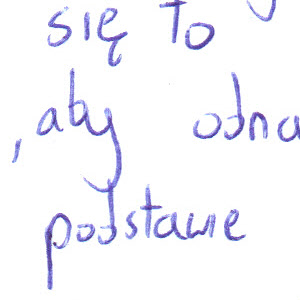 się to
, aby odna
podstawie